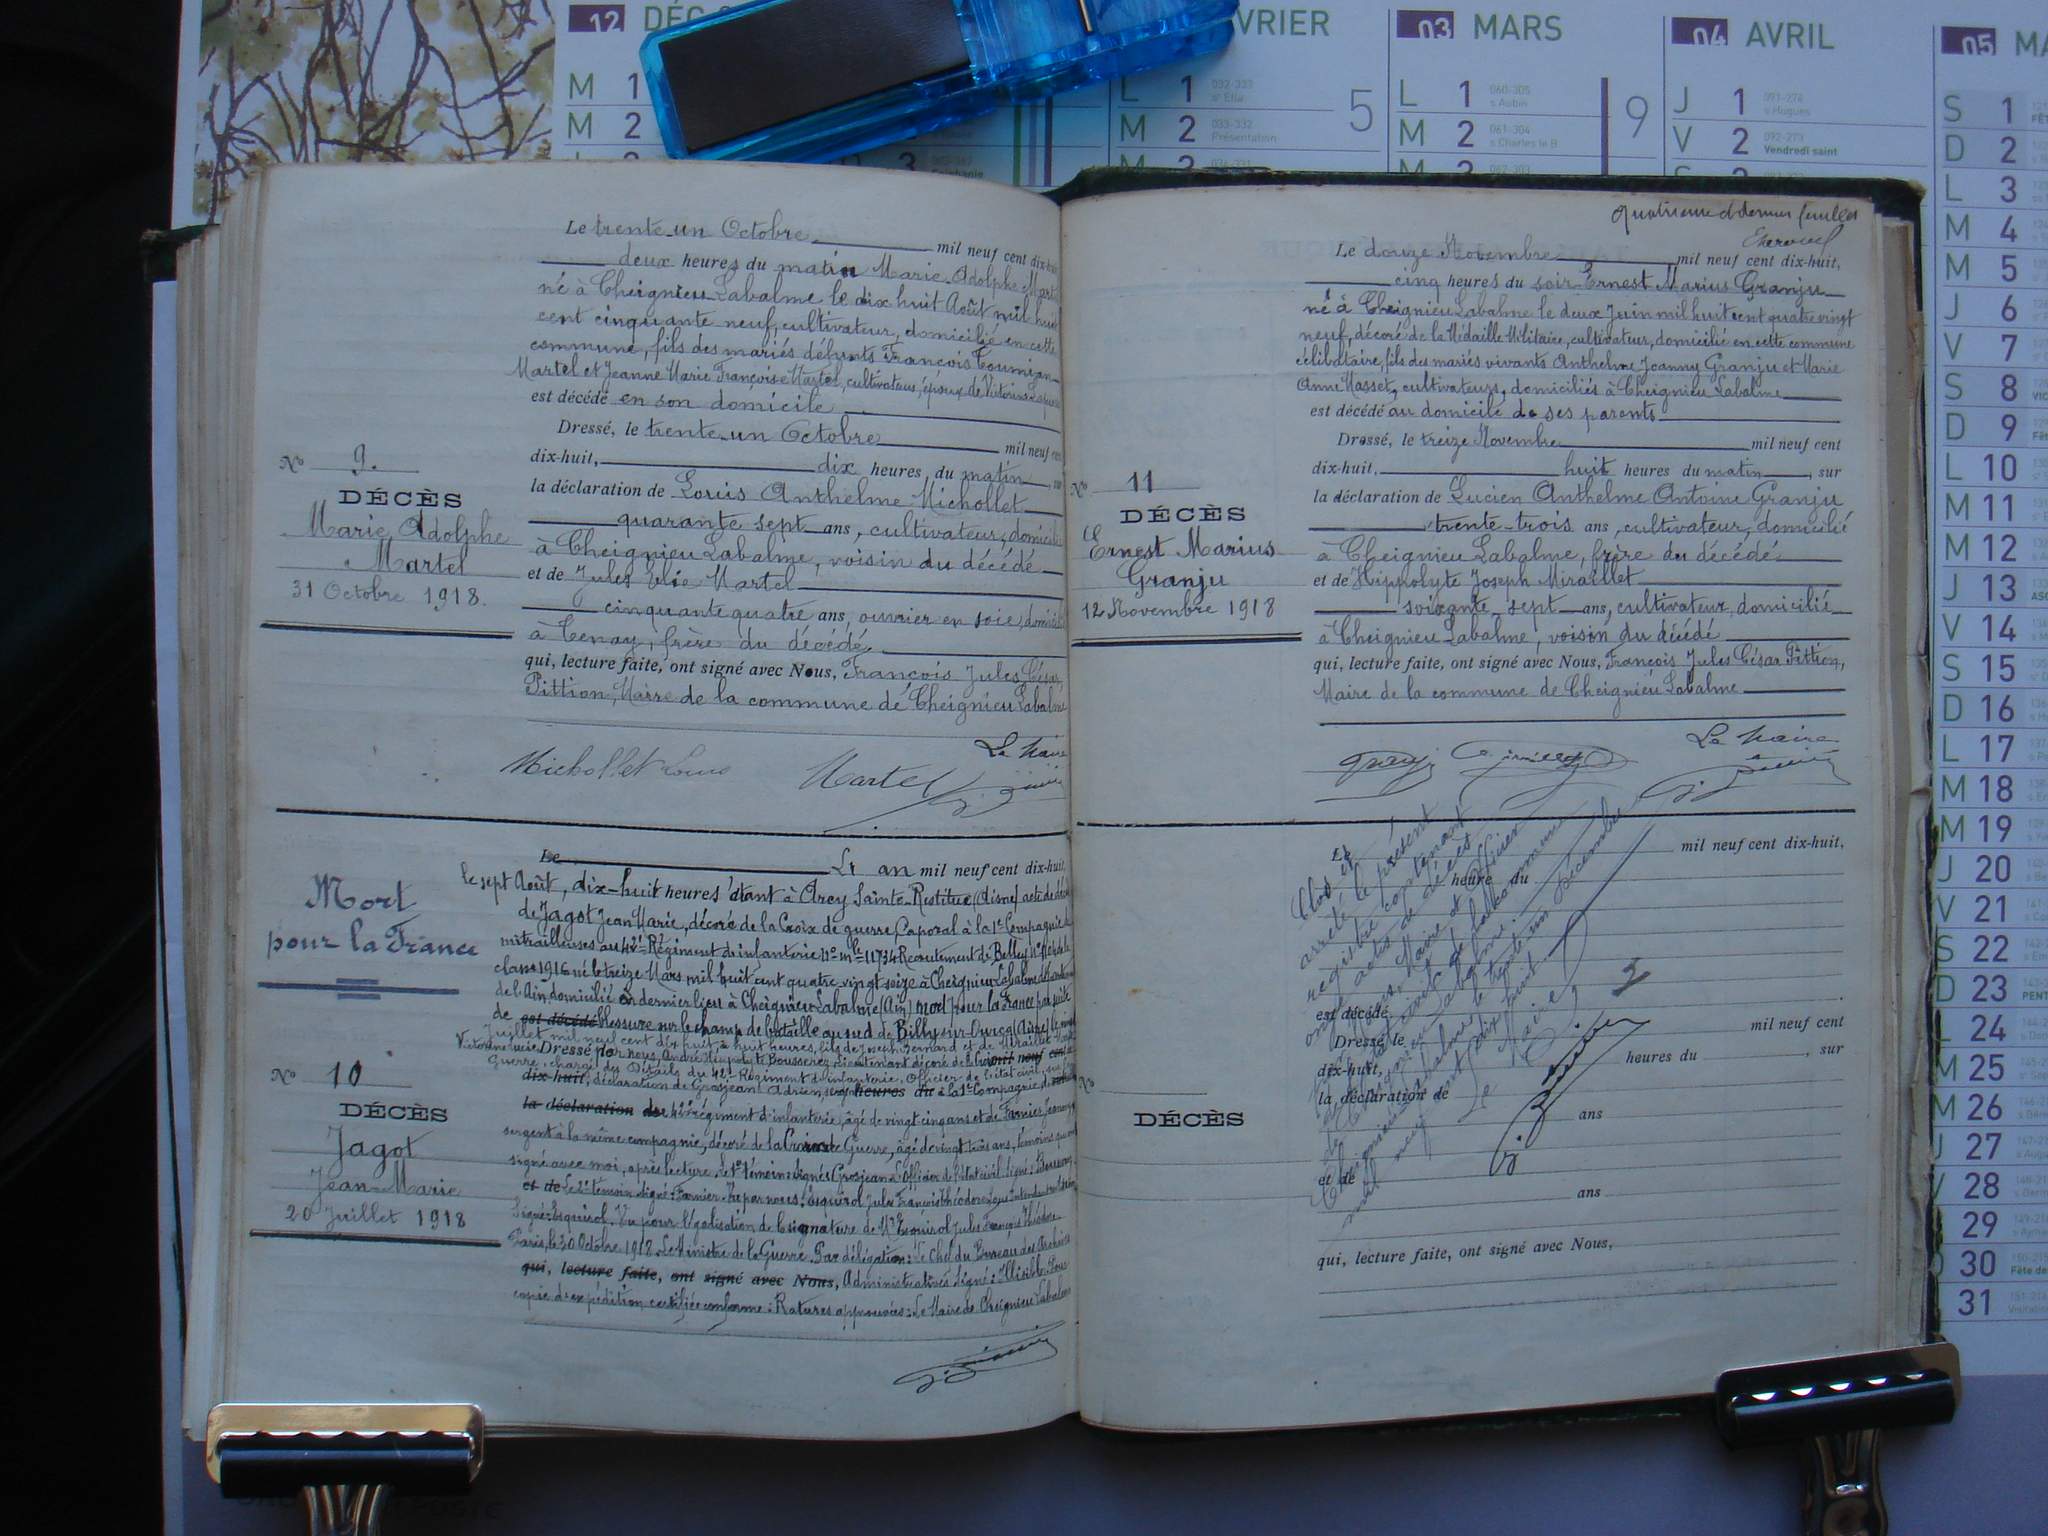 12 DÉC
VRIER
03 MARS
04 AVRIL
05 MA
M 1
M 2
L 1 032-333 sᵉ Ella
M 2 033-332 Présentation
5
L 1 060-305 s Aubin
M 2 061-304 s Charles le B
9
J 1 091-274 s Hugues
V 2 092-273 Vendredi saint
S 1
D 2
L 3
M 4
M 5
J 6
V 7
S 8
D 9
L 10
M 11
M 12
J 13
V 14
S 15
D 16
L 17
M 18
M 19
J 20
V 21
S 22
D 23
L 24
M 25
M 26
J 27
V 28
S 29
D 30
L 31
Le trente-un Octobre mil neuf cent dix-huit
deux heures du matin Marie-Adolphe Martel
né à Cheignieu-Labalme le dix huit Août mil huit
cent cinquante neuf, cultivateur, domicilié en cette
commune, fils des mariés défunts François
Martel et Jeanne Marie Françoise Martel, cultivateurs, époux de Victorine
est décédé en son domicile
Dressé, le trente-un Octobre mil neuf cent
dix-huit, dix heures, du matin, sur
la déclaration de Louis Anthelme Michollet
quarante sept ans, cultivateur, domicilié
à Cheignieu Labalme, voisin du décédé
et de Jules Elie Martel
cinquante quatre ans, ouvrier en soie, domicilié
à Tenay, frère du décédé
qui, lecture faite, ont signé avec Nous, François Jules César
Pittion, Maire de la commune de Cheignieu Labalme
Nº 9.
DÉCÈS
Marie Adolphe
Martel
31 Octobre 1918.
Michollet Louis Martel Le Maire
Mort
pour la France
Nº 10
DÉCÈS
Jagot
Jean-Marie
20 Juillet 1918
Le L'an mil neuf cent dix-huit,
le sept Août, dix-huit heures étant à Arcy Sainte-Restitue (Aisne) acte de décès
de Jagot Jean Marie, décoré de la Croix de guerre, Caporal à la 1ᵉ Compagnie de
mitrailleuses au 42ᵉ Régiment d'infanterie Nº mˡᵉ 11734 Recrutement de Belley
classe 1916 né le treize Mars mil huit cent quatre vingt seize à Cheignieu Labalme département
de l'Ain, domicilié en dernier lieu à Cheignieu-Labalme (Ain) mort pour la France par suite
de est décédé blessure sur le champ de bataille au sud de Billy-sur-Ourcq (Aisne) le vingt
Juillet mil neuf cent dix huit, à huit heures, fils de Joseph Fernand et de Miraillet Marie
Victorine Lucie Dressé par nous, André Hippolyte Lieutenant décoré de la Croix mil neuf cent
Guerre, chargé des Détails du 42ᵉ Régiment d'infanterie, Officier de l'état civil, sur
dix-huit, déclaration de Grosjean Adrien, heures du à la 1ᵉ Compagnie de
la déclaration de 42ᵉ régiment d'infanterie, âgé de vingt cinq ans et de Farnier
sergent à la même compagnie, décoré de la Croix de Guerre, âgé de vingt trois ans, témoins qui ont
signé avec moi, après lecture. Le 1ᵉ témoin signé: Grosjean. L'Officier de l'état civil signé:
et de Le 2ᵉ témoin signé: Farnier. Vu par nous: Esquirol Jules François Théodore Sous Intendant militaire
Signé: Esquirol. Vu pour légalisation de la signature de Mʳ Esquirol Jules François Théodore
Paris, le 30 Octobre 1918. Le Ministre de la Guerre. Par délégation: Le Chef du Bureau des Archives
qui, lecture faite, ont signé avec Nous, Administratives Signé: Illisible. Pour
copie d'expédition certifiée conforme: Ratures approuvées: Le Maire de Cheignieu Labalme
quatrième et dernier feuillet
Le douze Novembre mil neuf cent dix-huit,
cinq heures du soir Ernest Marius Granju
né à Cheignieu Labalme le deux Juin mil huit cent quatre vingt
neuf, décoré de la Médaille Militaire, cultivateur, domicilié en cette commune
célibataire, fils des mariés vivants Anthelme Joanny Granju et Marie
Anne Masset, cultivateurs, domiciliés à Cheignieu Labalme
est décédé au domicile de ses parents
Dressé, le treize Novembre mil neuf cent
dix-huit, huit heures du matin, sur
la déclaration de Lucien Anthelme Antoine Granju
trente-trois ans, cultivateur, domicilié
à Cheignieu Labalme, frère du décédé
et de Hippolyte Joseph Miraillet
soixante sept ans, cultivateur, domicilié
à Cheignieu Labalme, voisin du décédé
qui, lecture faite, ont signé avec Nous, François Jules César Pittion,
Maire de la commune de Cheignieu Labalme
Nº 11
DÉCÈS
Ernest Marius
Granju
12 Novembre 1918
Le Maire
Le mil neuf cent dix-huit,
heure du
est décédé
Dressé le mil neuf cent
dix-huit, heures du , sur
la déclaration de
ans
et de
ans
qui, lecture faite, ont signé avec Nous,
Nº
DÉCÈS
Clos et
arrêté le présent
registre contenant
onze actes de décès
par Nous, Maire et Officier
de l'état civil de la commune
de Cheignieu Labalme
Cheignieu Labalme, le trente-un Décembre
mil neuf cent dix huit
Le Maire,